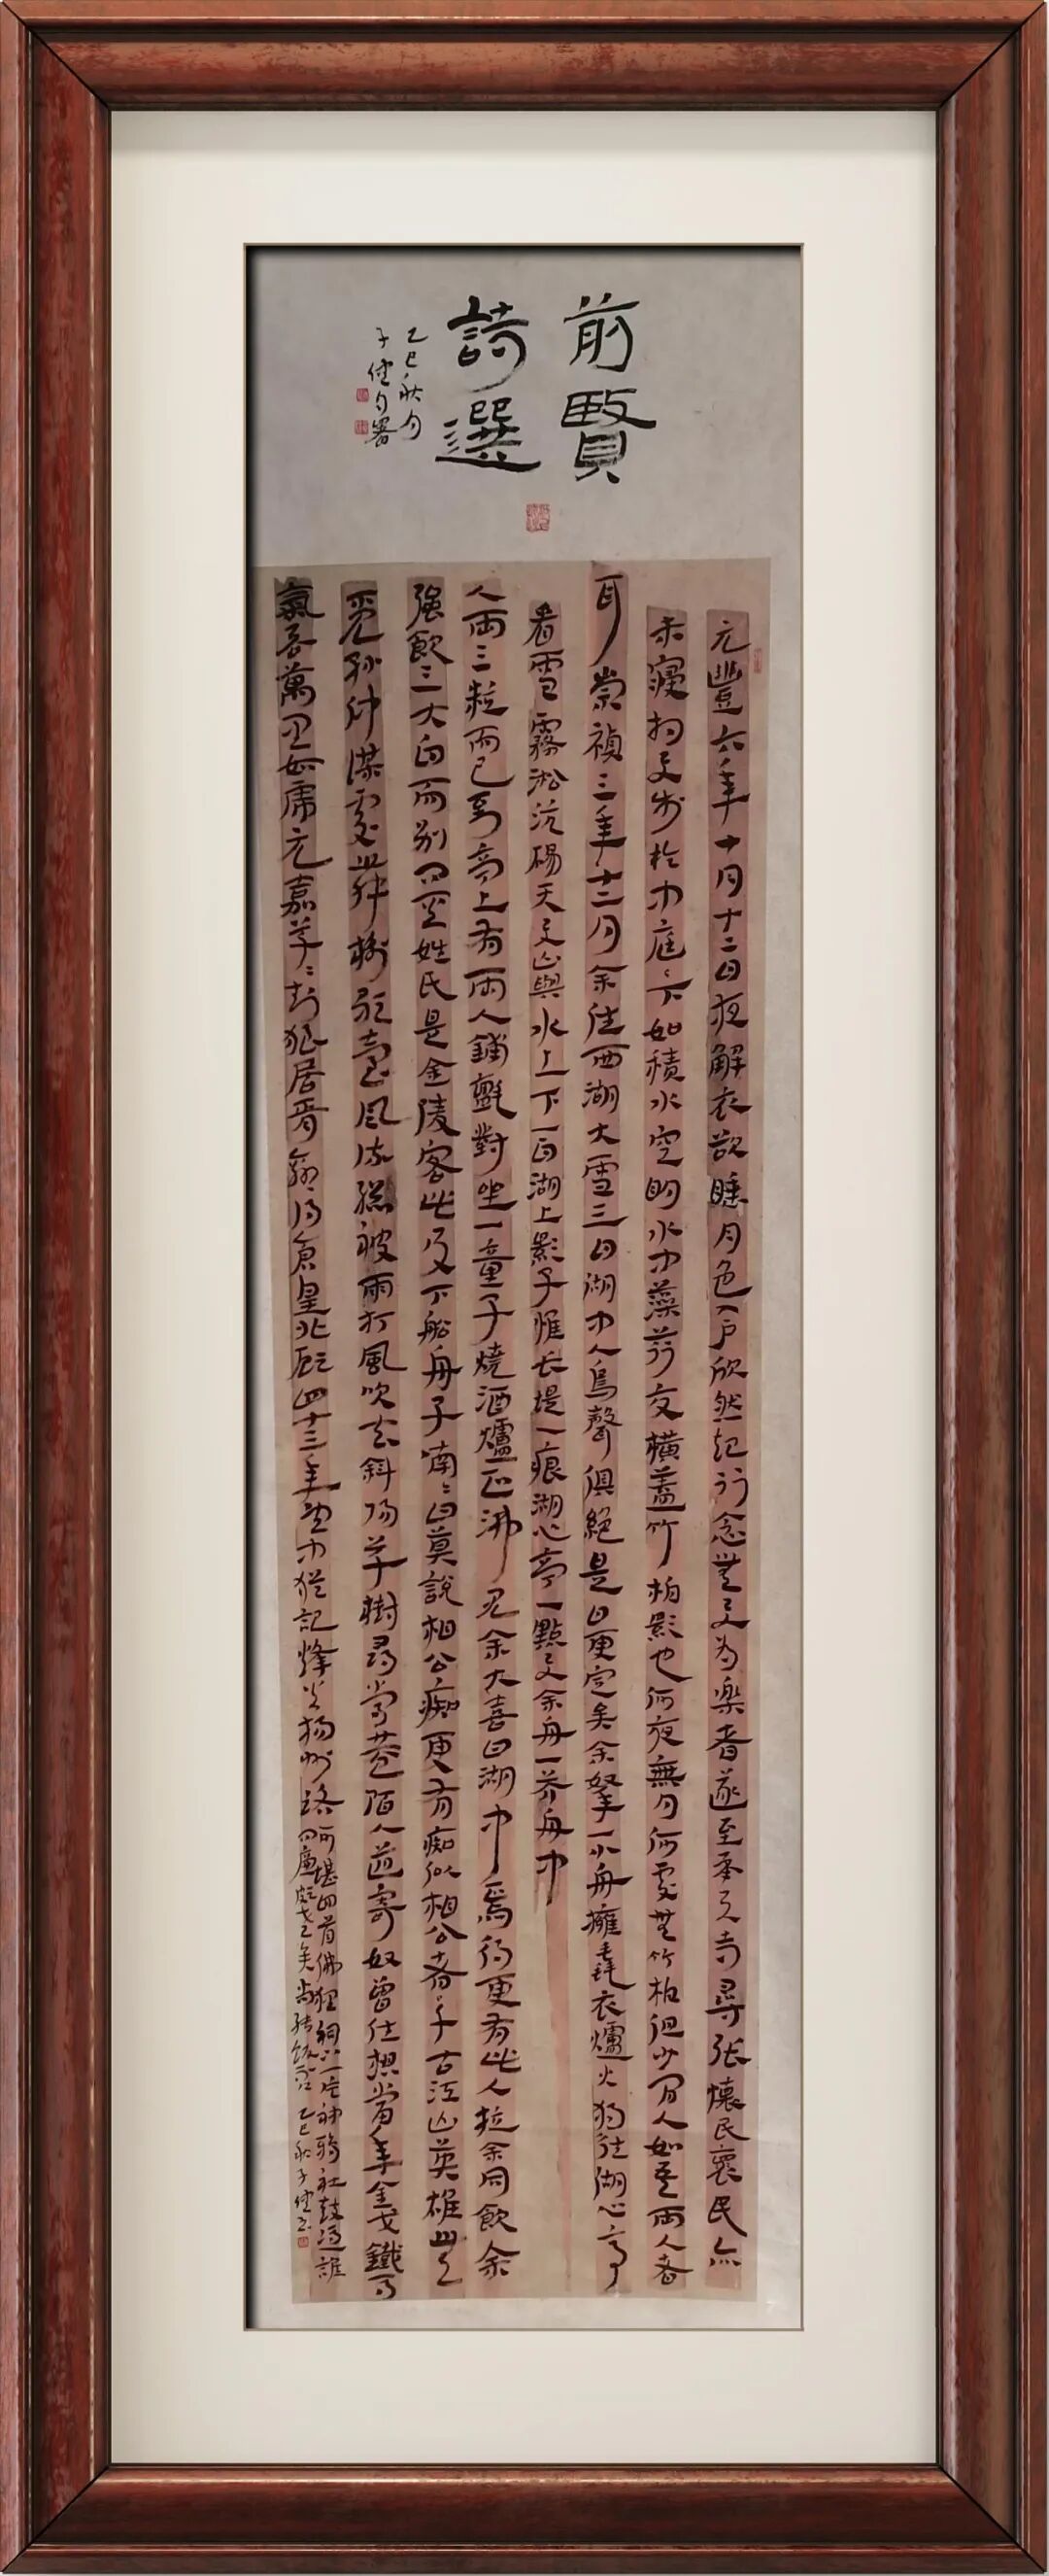 前賢
詩選
乙巳秋月
子健自署
元豐六年十月十二日夜解衣欲睡月色入戶欣然起行念無与為樂者遂至承天寺尋張懷民懷民亦
未寢相与步於中庭〻下如積水空明水中藻荇交橫蓋竹柏影也何夜無月何處無竹柏但少閒人如吾兩人者
耳崇禎三年十二月余往西湖大雪三日湖中人鳥聲俱絕是日更定矣余拏一小舟擁毳衣爐火獨往湖心亭
看雪霧淞沆碭天与山與水上下一白湖上影子惟長堤一痕湖心亭一點与余舟一芥舟中
人兩三粒而已到亭上有兩人鋪氈對坐一童子燒酒爐正沸見余大喜曰湖中焉得更有此人拉余同飲余
強飲三大白而別問其姓氏是金陵客此及下船舟子喃〻曰莫說相公痴更有痴似相公者千古江山英雄無
覓孫仲謀處舞榭歌臺風流總被雨打風吹去斜陽草樹尋常巷陌人道寄奴曾住想當年金戈鐵馬
氣吞萬里如虎元嘉草〻封狼居胥贏得倉皇北顧四十三年望中猶記烽火揚州路
可堪回首佛狸祠下一片神鴉社鼓憑誰
問廉頗老矣尚能飯否 乙巳秋子健書